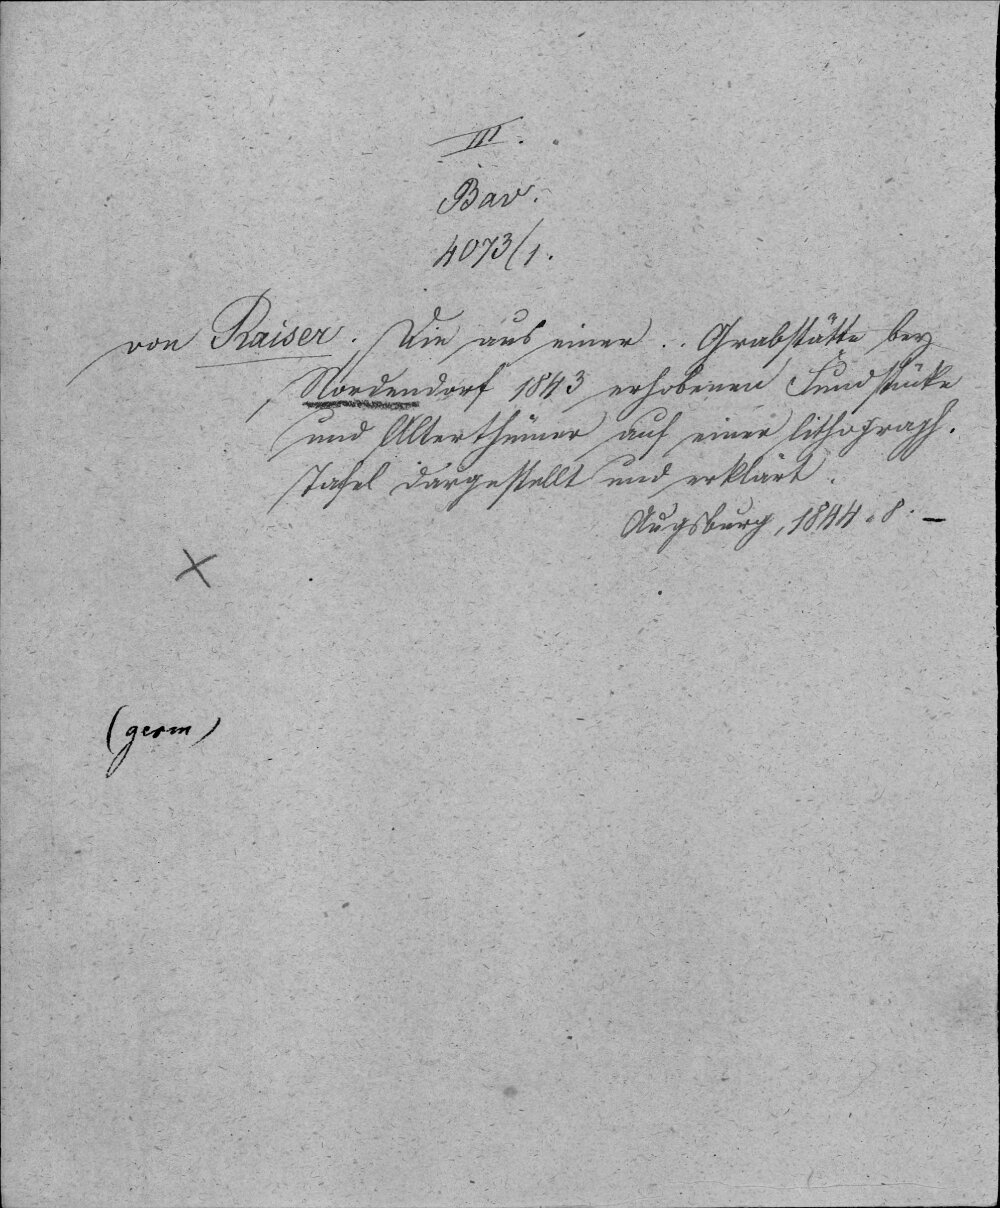 III.
Bav.
4073/1.
von Raiser. Die aus einer .. Grabstätte bey
Nordendorf 1843 erhobenen Fundstücke
und Alterthümer auf einer lithograph.
Tafel dargestellt und erklärt.
Augsburg, 1844. 8. –
×
(germ)